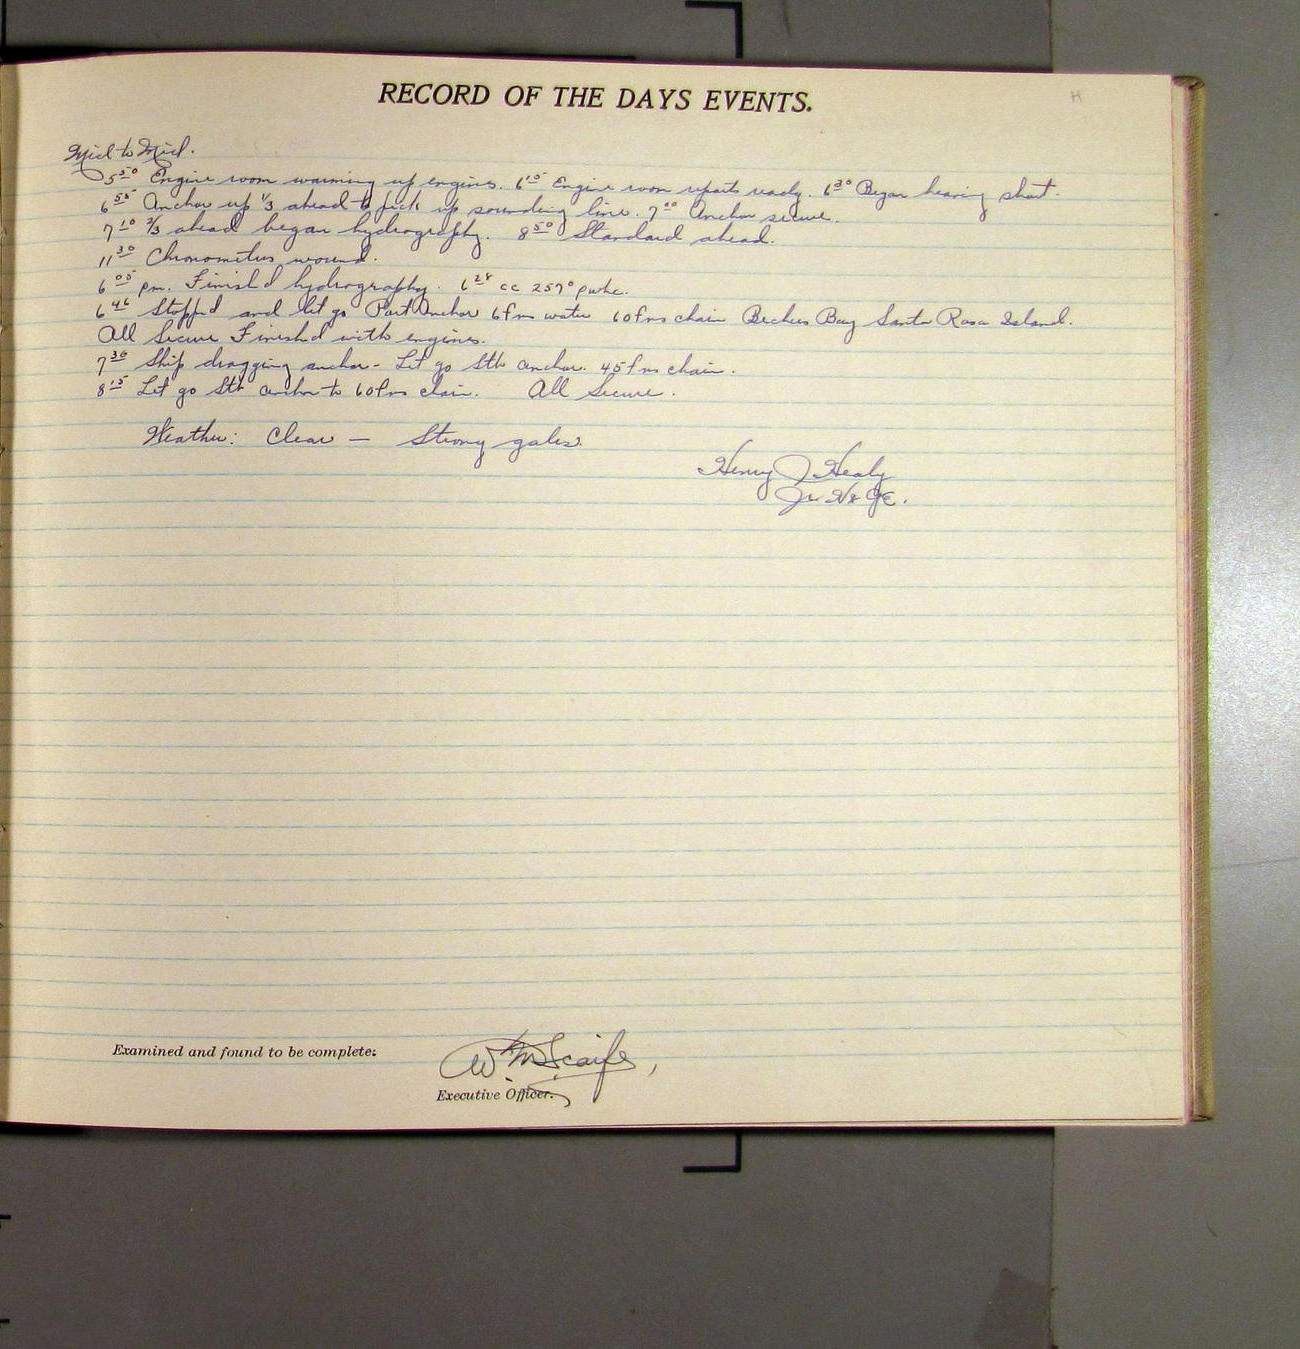 RECORD OF THE DAYS EVENTS.
Mid to Mid.
5 50 Engine room warming up engines. 6 15 Engine room reports ready. 6 30 Began heaving short.
6 55 Anchor up 1/3 ahead to pick up sounding line. 7 00 Anchor secure.
7 10 2/3 ahead began hydrography. 8 50 Standard ahead.
11 30 Chronometers wound.
6 05 pm. Finish'd hydrography. 6 28 cc 257°
6 46 Stopp'd and let go Port Anchor 6 fms water 60 fms chain Bechers Bay Santa Rosa Island.
All Secure Finish'd with engines.
7 30 Ship dragging anchor - Let go Stb anchor. 45 fms chain.
8 15 Let go Stb anchor to 60 fms chain. All Secure.
Weather: Clear — Strong gales.
Henry J Healy
Jr. H & GE.
Examined and found to be complete:
Wm. M. Scaife,
Executive Officer.